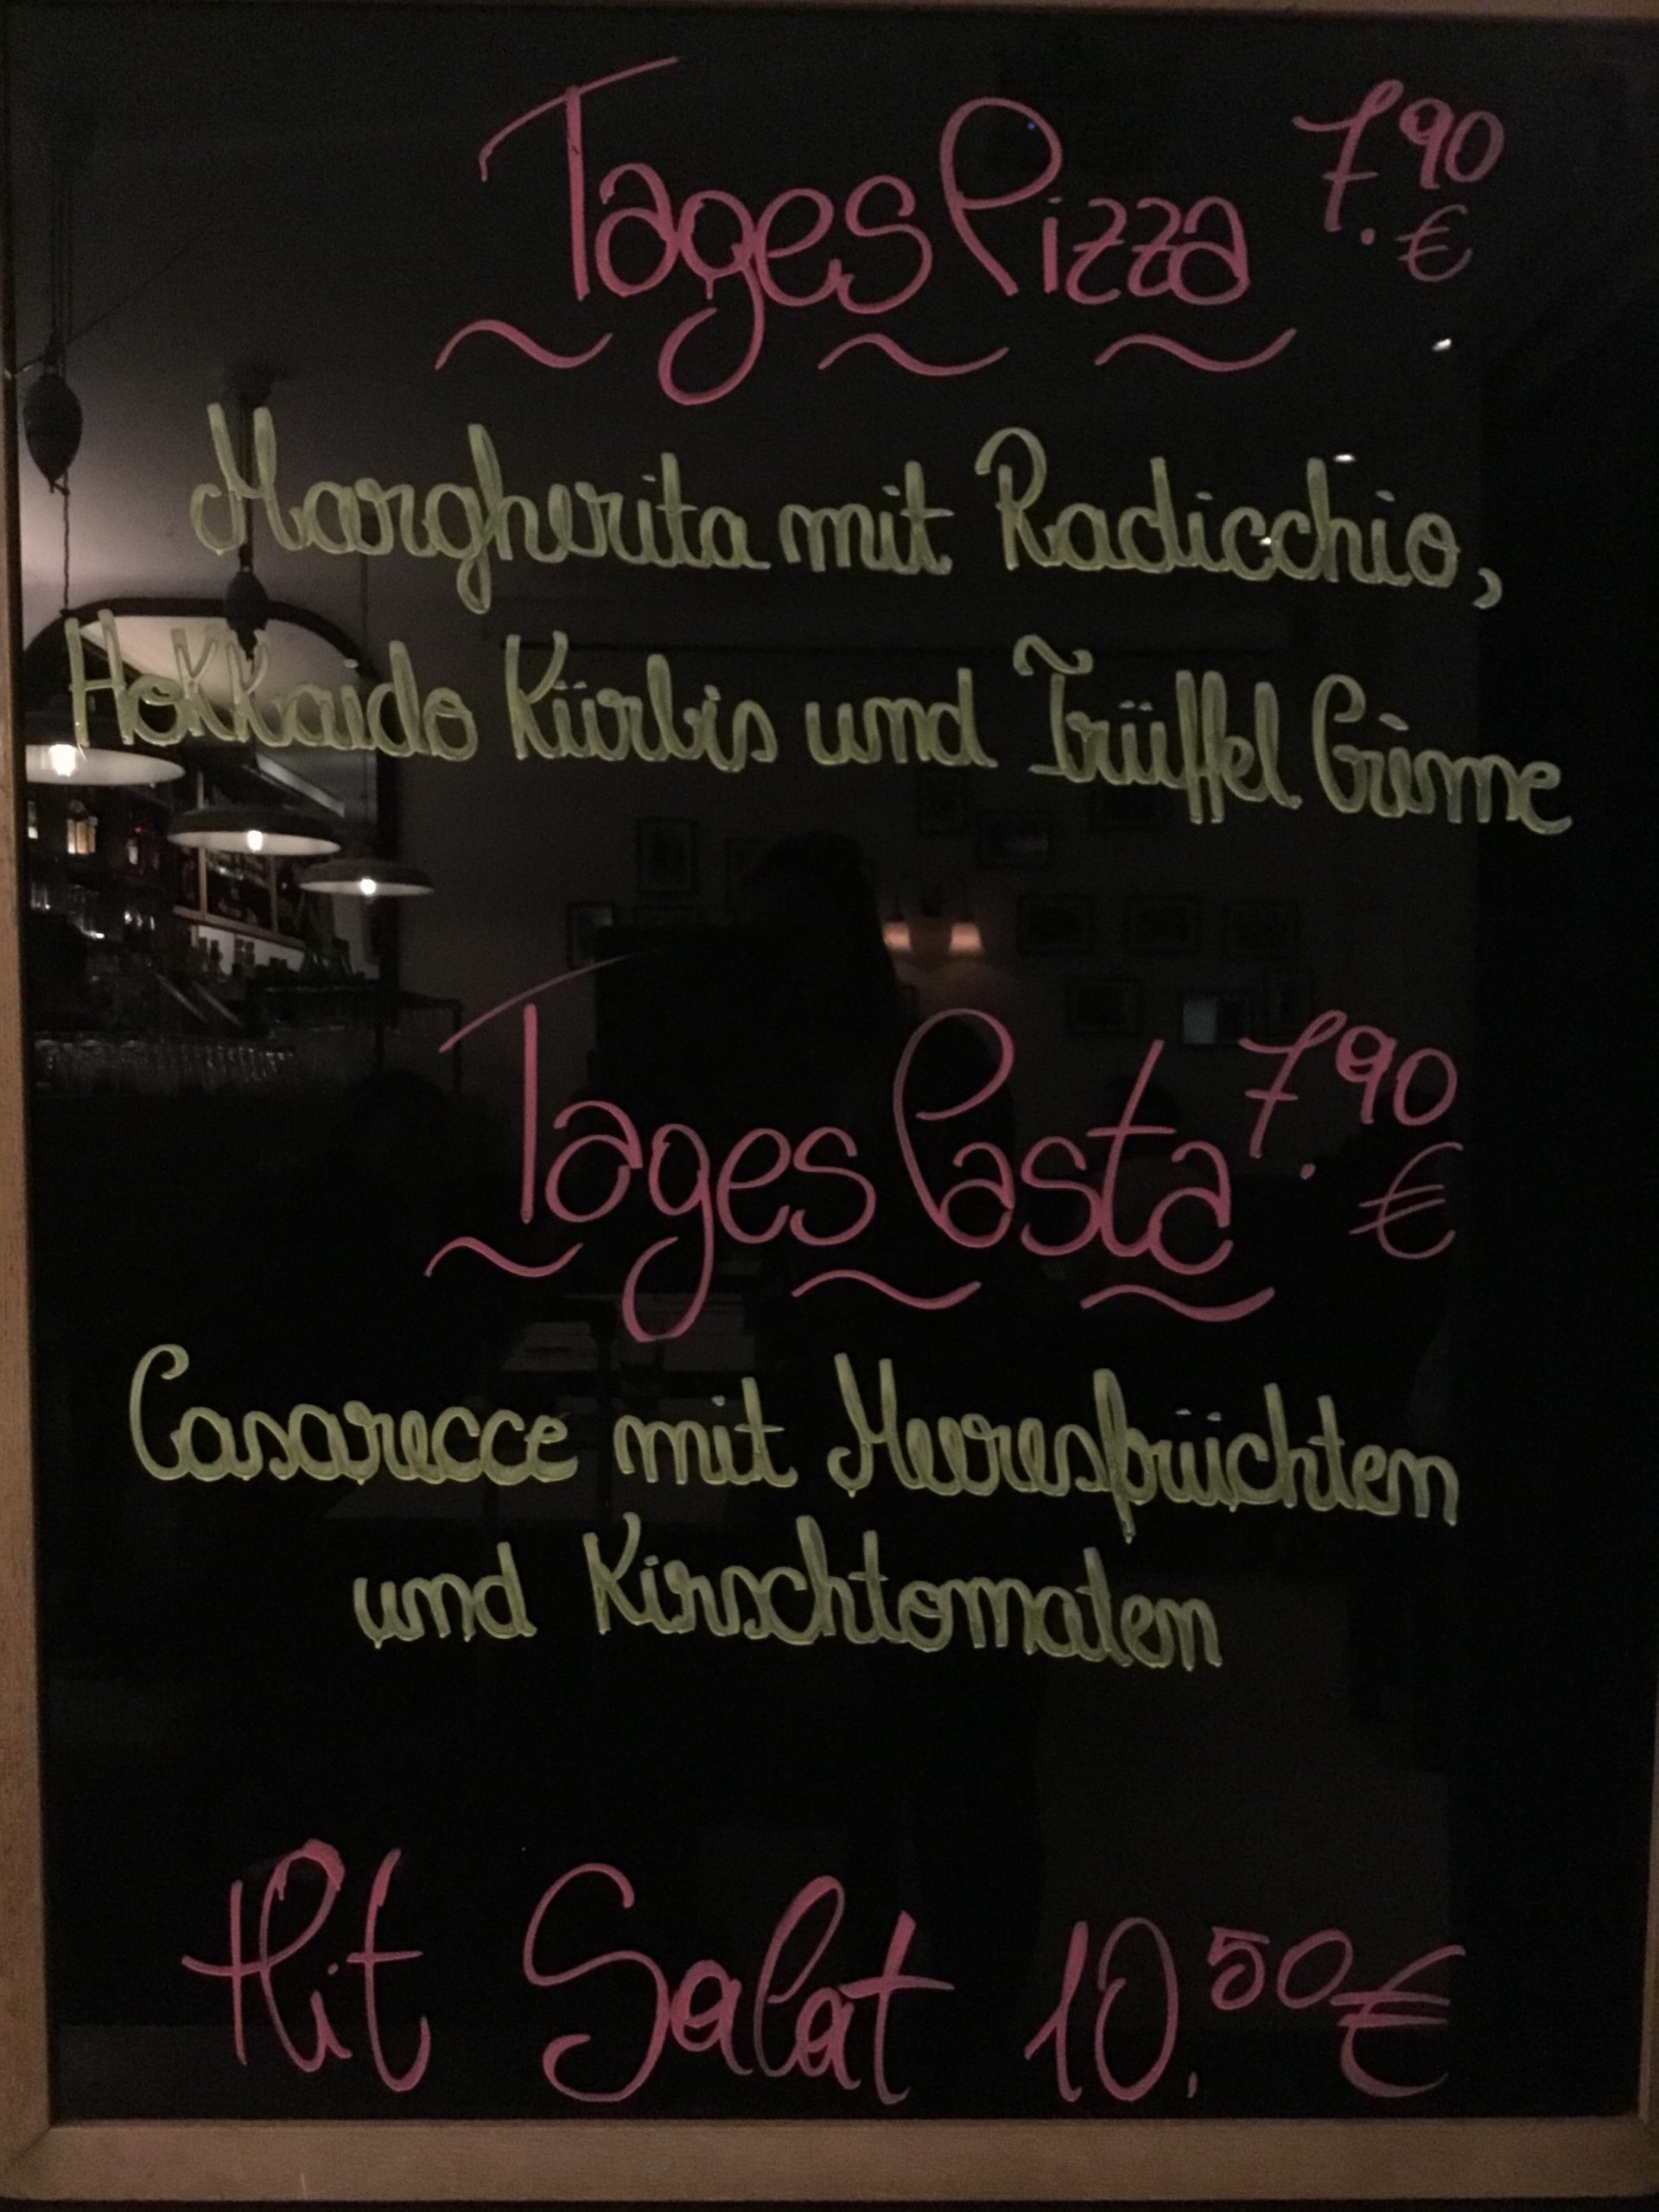 Tages Pizza 7.90 €
Margherita mit Radicchio,
Hokkaido Kürbis und Trüffel Crème
Tages Pasta 7.90 €
Casarecce mit Meeresfrüchten
und Kirschtomaten
Hit Salat 10.50 €